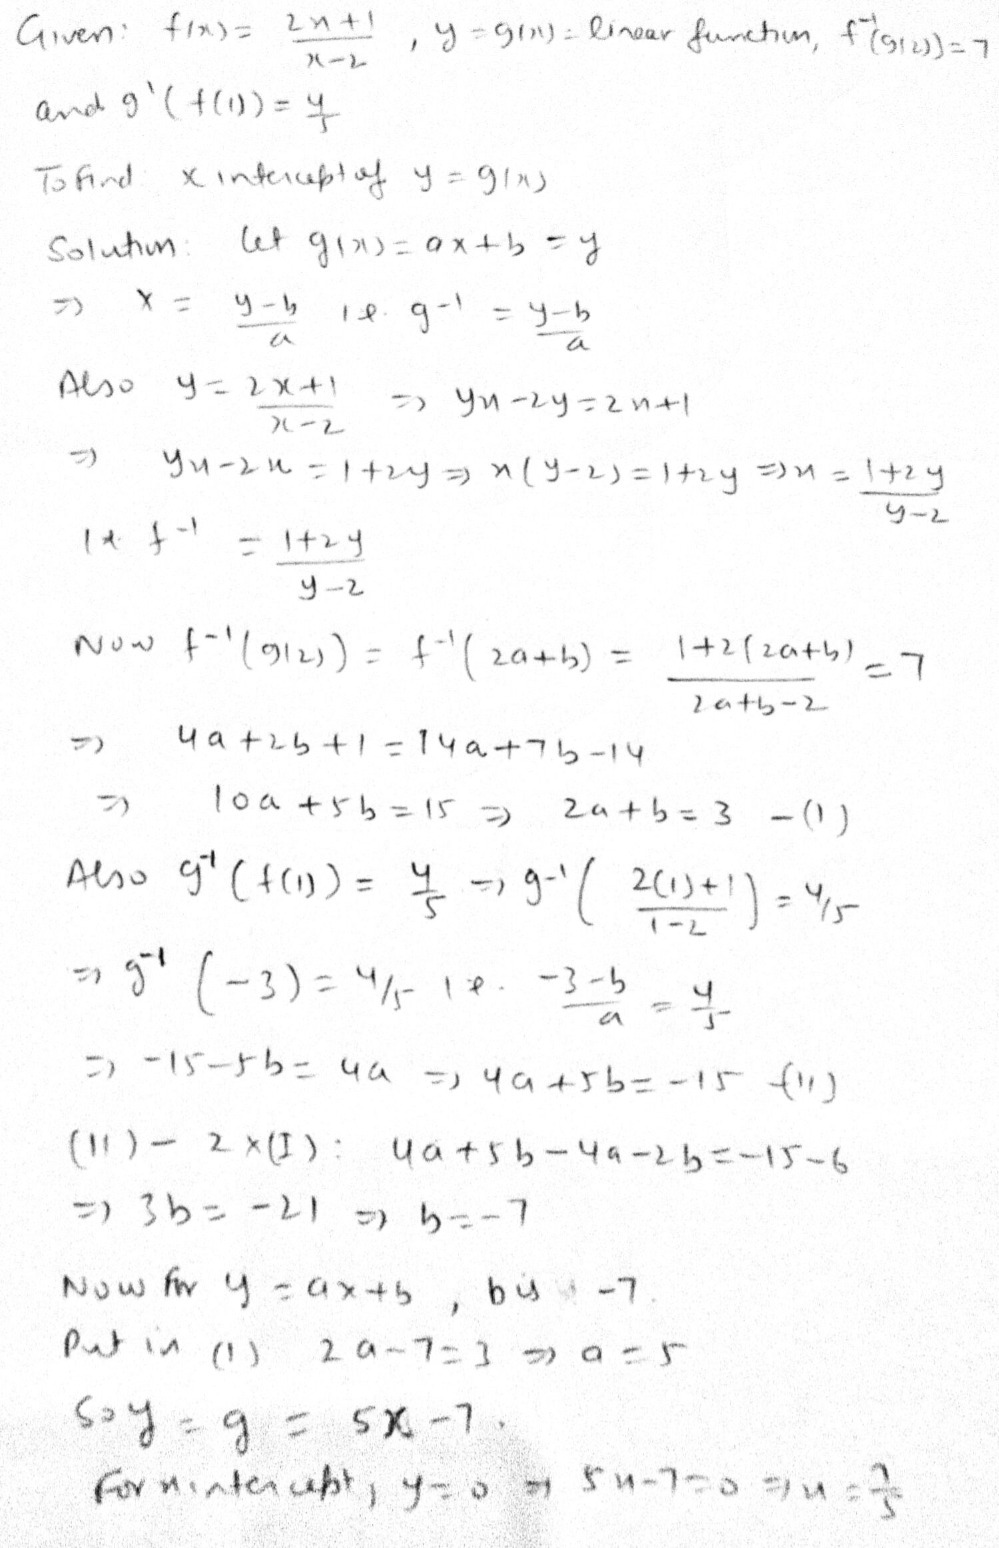 Given: f(x) = 2x+1/x-2, y = g(x) = linear function, f⁻¹(g(2)) = 7
and g'(f(1)) = 4/5
To find x intercept of y = g(x)
Solution: let g(x) = ax+b = y
=> x = y-b/a i.e. g-1 = y-b/a
Also y = 2x+1/x-2 => yx-2y = 2x+1
=> yx-2x = 1+2y => x(y-2) = 1+2y => x = 1+2y/y-2
i.e. f-1 = 1+2y/y-2
Now f-1(g(2)) = f-1(2a+b) = 1+2(2a+b)/2a+b-2 = 7
=> 4a+2b+1 = 14a+7b-14
=> 10a+5b = 15 => 2a+b = 3 -(1)
Also g-1(f(1)) = 4/5 => g-1(2(1)+1/1-2) = 4/5
=> g-1(-3) = 4/5 i.e. -3-b/a = 4/5
=> -15-5b = 4a => 4a+5b = -15 -(11)
(11) - 2x(I): 4a+5b-4a-2b = -15-6
=> 3b = -21 => b = -7
Now for y = ax+b, b is -7.
Put in (1) 2a-7 = 3 => a = 5
So y = g = 5x-7.
For x intercept, y=0 => 5x-7=0 => x = 7/5